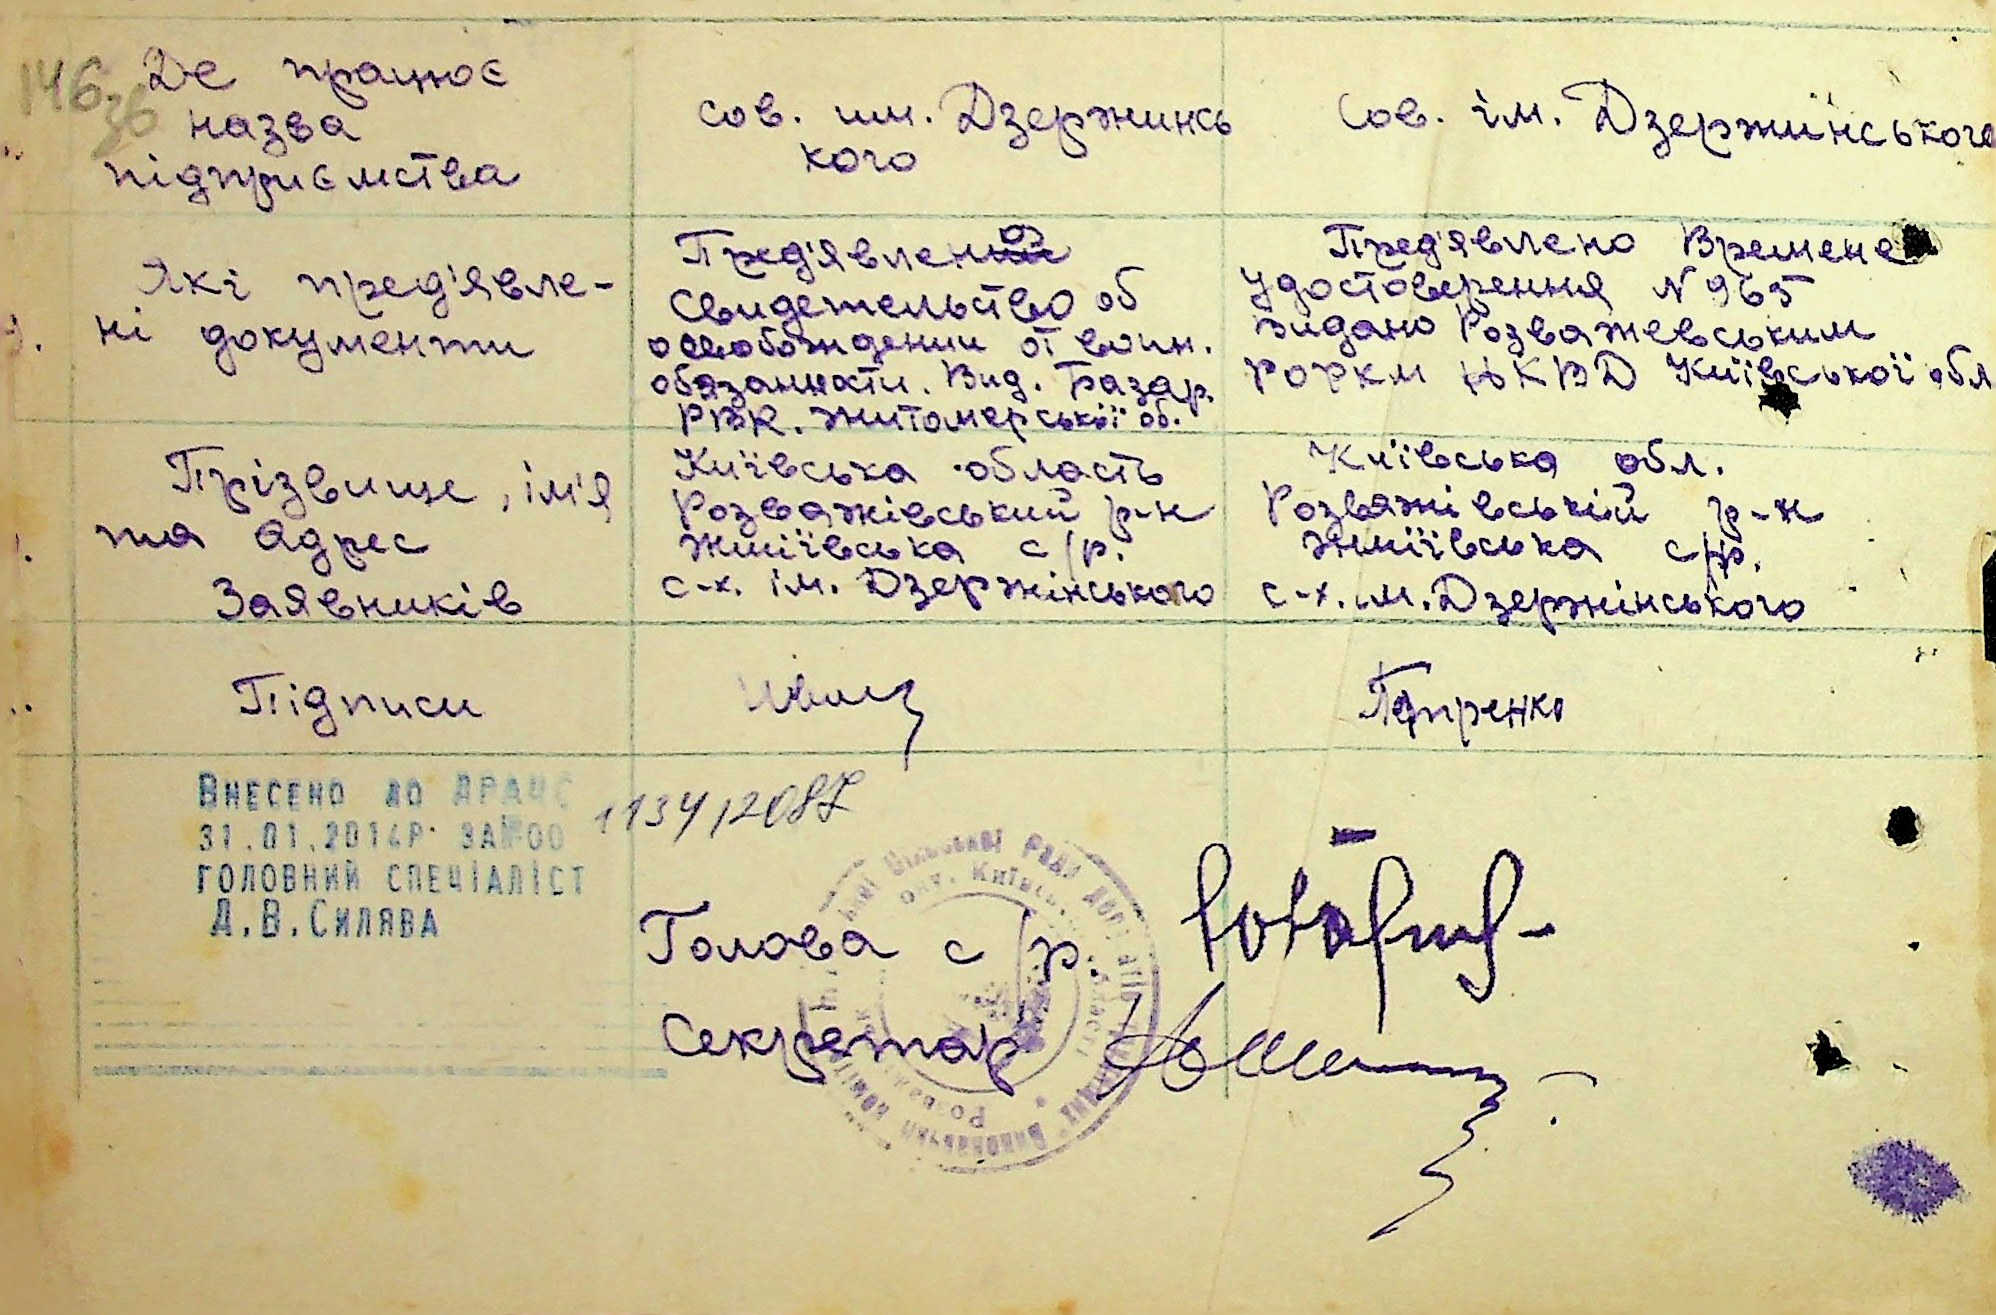 146 зв
Де працює
назва
підприємства
сов. им. Дзержинсь
кого
Сов. ім. Дзержинського
Які пред'явле-
ні документи
Пред'явлено
Свидетельство об
освобождении от воин.
обязанности. Вид. Базар.
РВК. Житомерської об.
Пред'явлено Времене
Удостоверення N 965
видано Розважевським
РОРКМ НКВД Київської обл
Прізвище, ім'я
та адрес
Заявників
Київська область
Розважівський р-н
Жміївська с/р.
с-х. ім. Дзержінського
Київська обл.
Розважівський р-н
Жміївська с/р.
с-х. ім. Дзержінського
Підписи
Внесено до ДРАЦС
31.01.2014р. за №00
113412087
головний спеціаліст
Д.В.Силява
Голова с/р.
Секретар